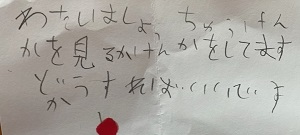 わたいはしょっちゅうけん
かを見るかけんかをしてます
どかうすればいいいでいす
か